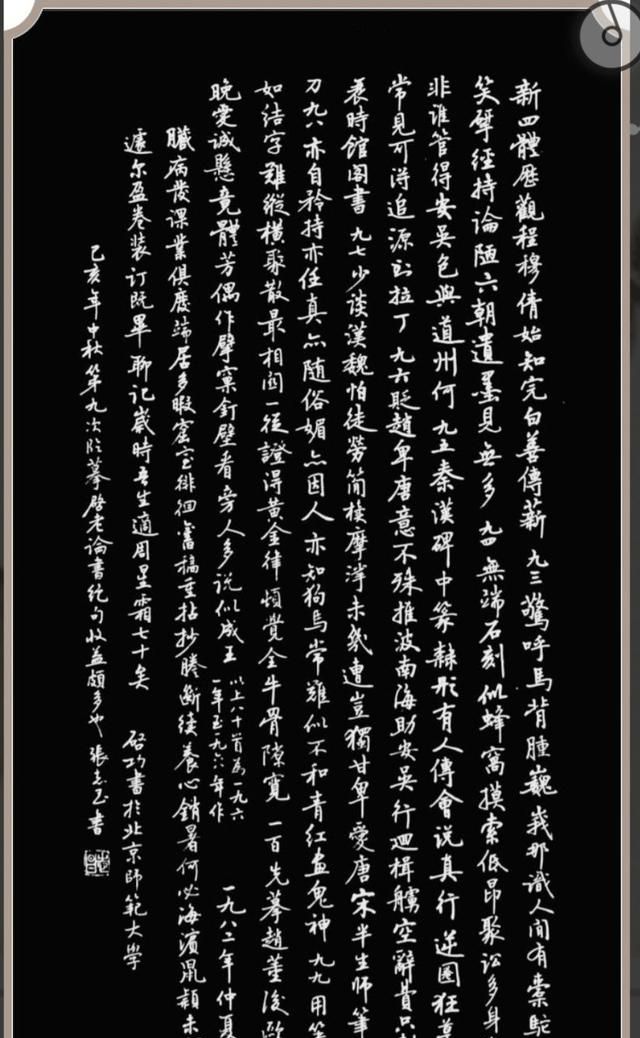 新四體歷觀程穆倩始知完白善傳薪 九三 驚呼馬背腫巍峩那識人間有橐駝
笑擘經持論陋六朝遺墨見無多 九四 無端石刻似蜂窩摸索低昂聚訟多身
非誰管得安吳包與道州何 九五 秦漢碑中篆隸形有人傳會説真行逆圈狂草
常見可得追源到拉丁 九六 貶趙卑唐意不殊推波南海助安吳行迴楫艣空辭費只
衰時館閣書 九七 少談漢魏怕徒勞簡牘摩挲未幾遭豈獨甘卑愛唐宋半生師筆
刀 九八 亦自矜持亦任真亦随俗媚亦因人亦知狗馬常難似不和青紅畫鬼神 九九 用筆
如結字難縱横聚散最相関一從證得黄金律頓覺全牛骨隙寬 一百 先摹趙董後歐
晚愛誠懸竟體芳偶作擘窠釘壁看旁人多説似成王 以上八十首為一九六一年至一九六年作 一九八二年仲夏
臓病發課業俱廢端居多暇窰室徘徊舊稿重拈抄謄斷續養心銷暑何必海濱鼠穎未
遽尔盈卷装订既畢聊记嵗時吾生適周星霜七十矣 启功書於北京師範大學
己亥年中秋第九次临摹启老論書绝句收益頗多也 張志玉書